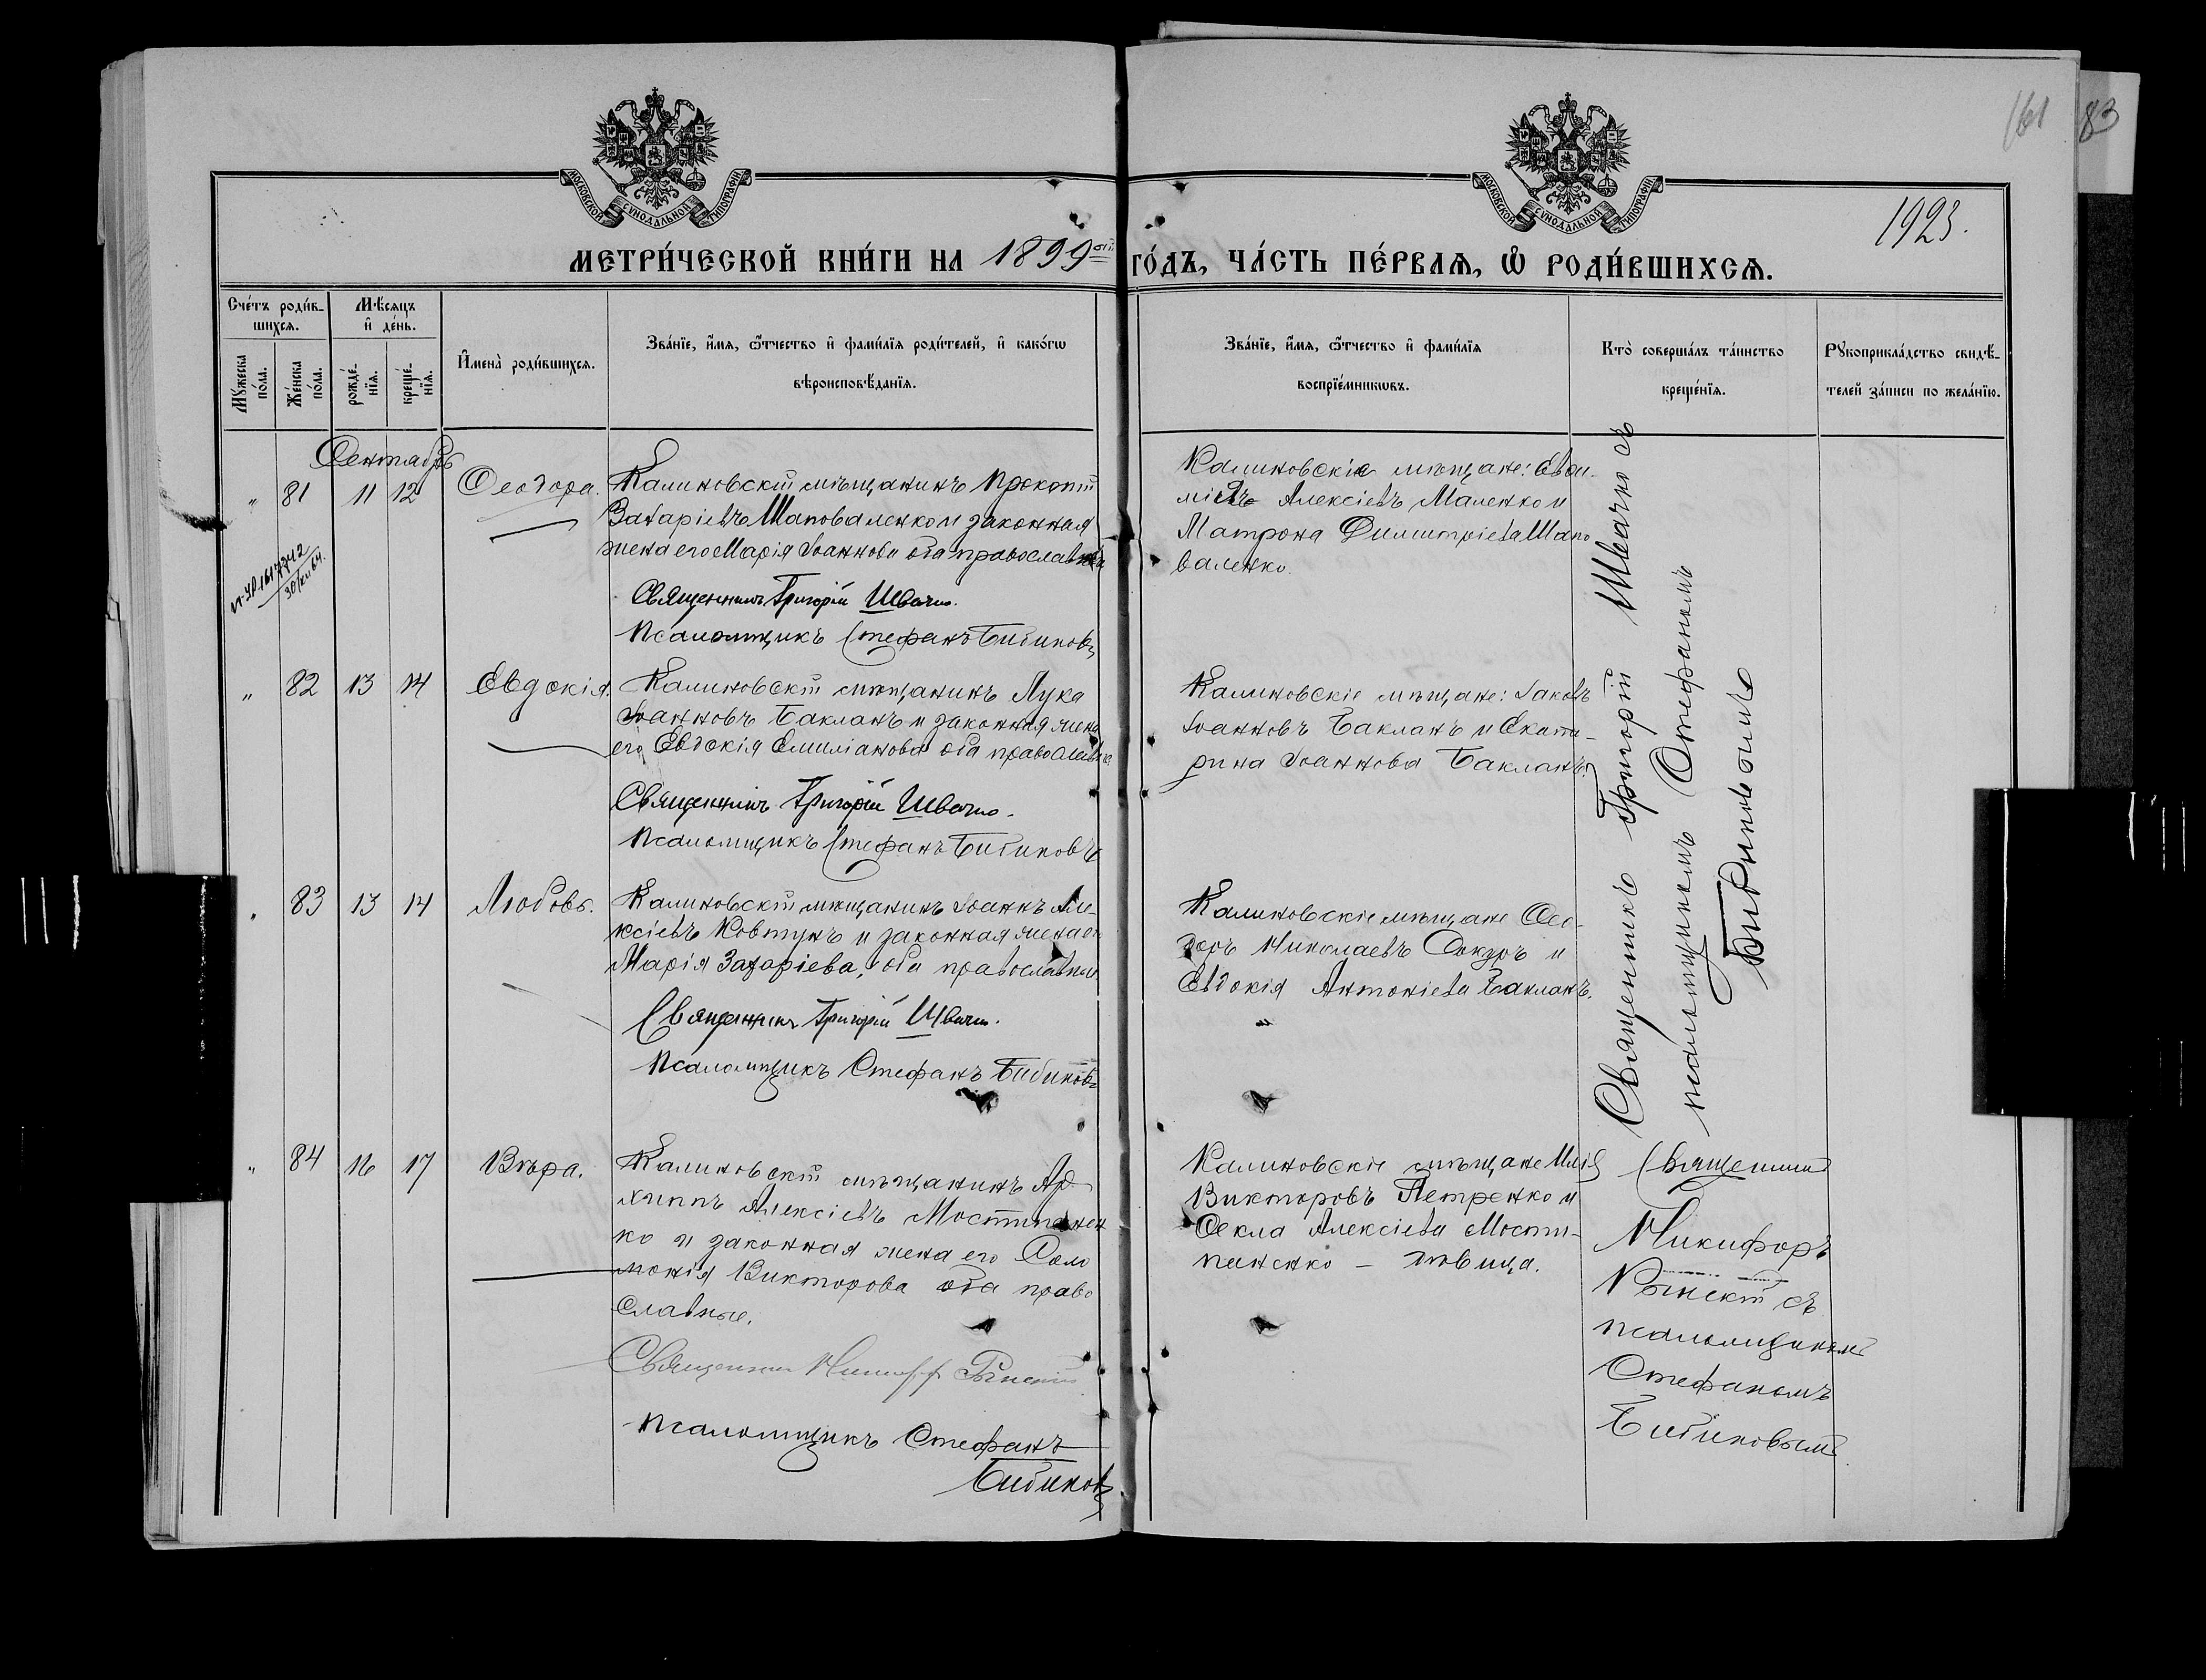 161 83
МОСКОВСКОЙ СѴНОДАЛЬНОЙ ТИПОГРАФІИ
МОСКОВСКОЙ СѴНОДАЛЬНОЙ ТИПОГРАФІИ
1923.
МЕТРИ́ЧЕСКОЙ КНИ́ГИ НА 1899 ый ГО́ДЪ, ЧА́СТЬ ПЕ́РВАѦ, Ѿ РОДИ́ВШИХСѦ.
Сче́тъ роди́в-
шихсѧ.
Мѣ́сѧцъ
и҆ де́нь.
Мꙋ́жеска
по́ла.
Же́нска
по́ла.
рожде́-
нїѧ.
креще́-
нїѧ.
И҆мена̀ роди́вшихсѧ.
Зва́нїе, и҆́мѧ, ѻ҆́тчество и҆ фами́лїѧ роди́телей, и҆ како́гѡ
вѣроисповѣ́данїѧ.
Зва́нїе, и҆́мѧ, ѻ҆́тчество и҆ фами́лїѧ
воспрїе́мникѡвъ.
Кто̀ соверша́лъ та́инство
креще́нїѧ.
Рꙋкоприкла́дство свидѣ́-
телей за́писи по жела́нїю.
Сентябрь
" 81 11 12 Ѳеодора.
Калиновскій мѣщанинъ Прокопій
Захаріевъ Шаповаленко и законная
жена его Марія Іоаннова оба православные
Священникъ Григорій Швачко.
Псаломщикъ Стефанъ Бибиковъ
Калиновскіе мѣщане: Евѳи-
мій Алексіевъ Маленко и
Матрона Димитріева Шапо-
валенко.
Священникъ Григорій Швачко съ
псаломщикомъ Стефаномъ
Бибиковымъ
" 82 13 14 Евдокія.
Калиновскій мѣщанинъ Лука
Іоанновъ Бакланъ и законная жена
его Евдокія Емиліанова оба православные
Священникъ Григорій Швачко.
Псаломщикъ Стефанъ Бибиковъ
Калиновскіе мѣщане: Іаковъ
Іоанновъ Бакланъ и Екате-
рина Іоаннова Бакланъ.
" 83 13 14 Любовь.
Калиновскій мѣщанинъ Іоаннъ Але-
ксіевъ Ковтунъ и законная жена его
Марія Захаріева, оба православные
Священникъ Григорій Швачко.
Псаломщикъ Стефанъ Бибиковъ
Калиновскіе мѣщане Ѳео-
доръ Николаевъ Сокуръ и
Евдокія Антоніева Бакланъ.
" 84 16 17 Вѣра.
Калиновскій мѣщанинъ Ар-
хиппъ Алексіевъ Мостипанен
ко и законная жена его Соло
монія Викторова оба право
славные.
Священникъ Никифоръ
Псаломщикъ Стефанъ
Бибиковъ
Калиновскіе мѣщане Илія
Викторовъ Петренко и
Ѳекла Алексіева Мости-
паненко – дѣвица.
Священникъ
Никифоръ
съ
псаломщикомъ
Стефаномъ
Бибиковымъ